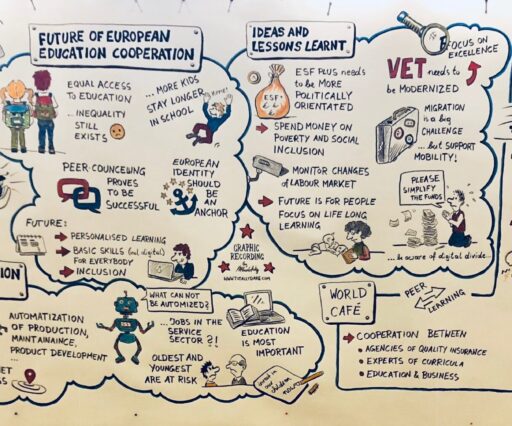 FUTURE OF EUROPEAN
EDUCATION COOPERATION
EQUAL ACCESS
TO EDUCATION
...INEQUALITY
STILL
EXISTS
...MORE KIDS
STAY LONGER
IN SCHOOL
PEER-COUNCELING
PROVES
TO BE
SUCCESSFUL
EUROPEAN
IDENTITY
SHOULD
BE
AN
ANCHOR
FUTURE:
PERSONALISED LEARNING
BASIC SKILLS (not digital)
FOR EVERYBODY
INCLUSION
GRAPHIC
RECORDING
by
IDEAS AND
LESSONS LEARNT
ESF+
ESF PLUS needs
to be MORE
POLITICALLY
ORIENTATED
SPEND MONEY ON
POVERTY AND SOCIAL
INCLUSION
MONITOR CHANGES
of LABOUR MARKET
FUTURE IS FOR PEOPLE
FOCUS ON LIFE LONG
LEARNING
FOCUS ON
EXCELLENCE
VET needs to
be MODERNIZED
MIGRATION
IS A BIG
CHALLENGE
...but SUPPORT
MOBILITY!
PLEASE
SIMPLIFY
THE FUNDS
...& be aware of digital divide...
AUTOMATIZATION
OF PRODUCTION,
MAINTAINANCE,
PRODUCT DEVELOPMENT
...
WHAT CAN NOT
BE AUTOMIZED?
...JOBS IN THE
SERVICE
SECTOR ?!
OLDEST AND
YOUNGEST
ARE AT RISK
EDUCATION
IS MOST
IMPORTANT
invest in
our
children
WORLD
CAFÉ
PEER
LEARNING
COOPERATION BETWEEN
AGENCIES OF QUALITY INSURANCE
EXPERTS OF CURRICULA
EDUCATION & BUSINESS